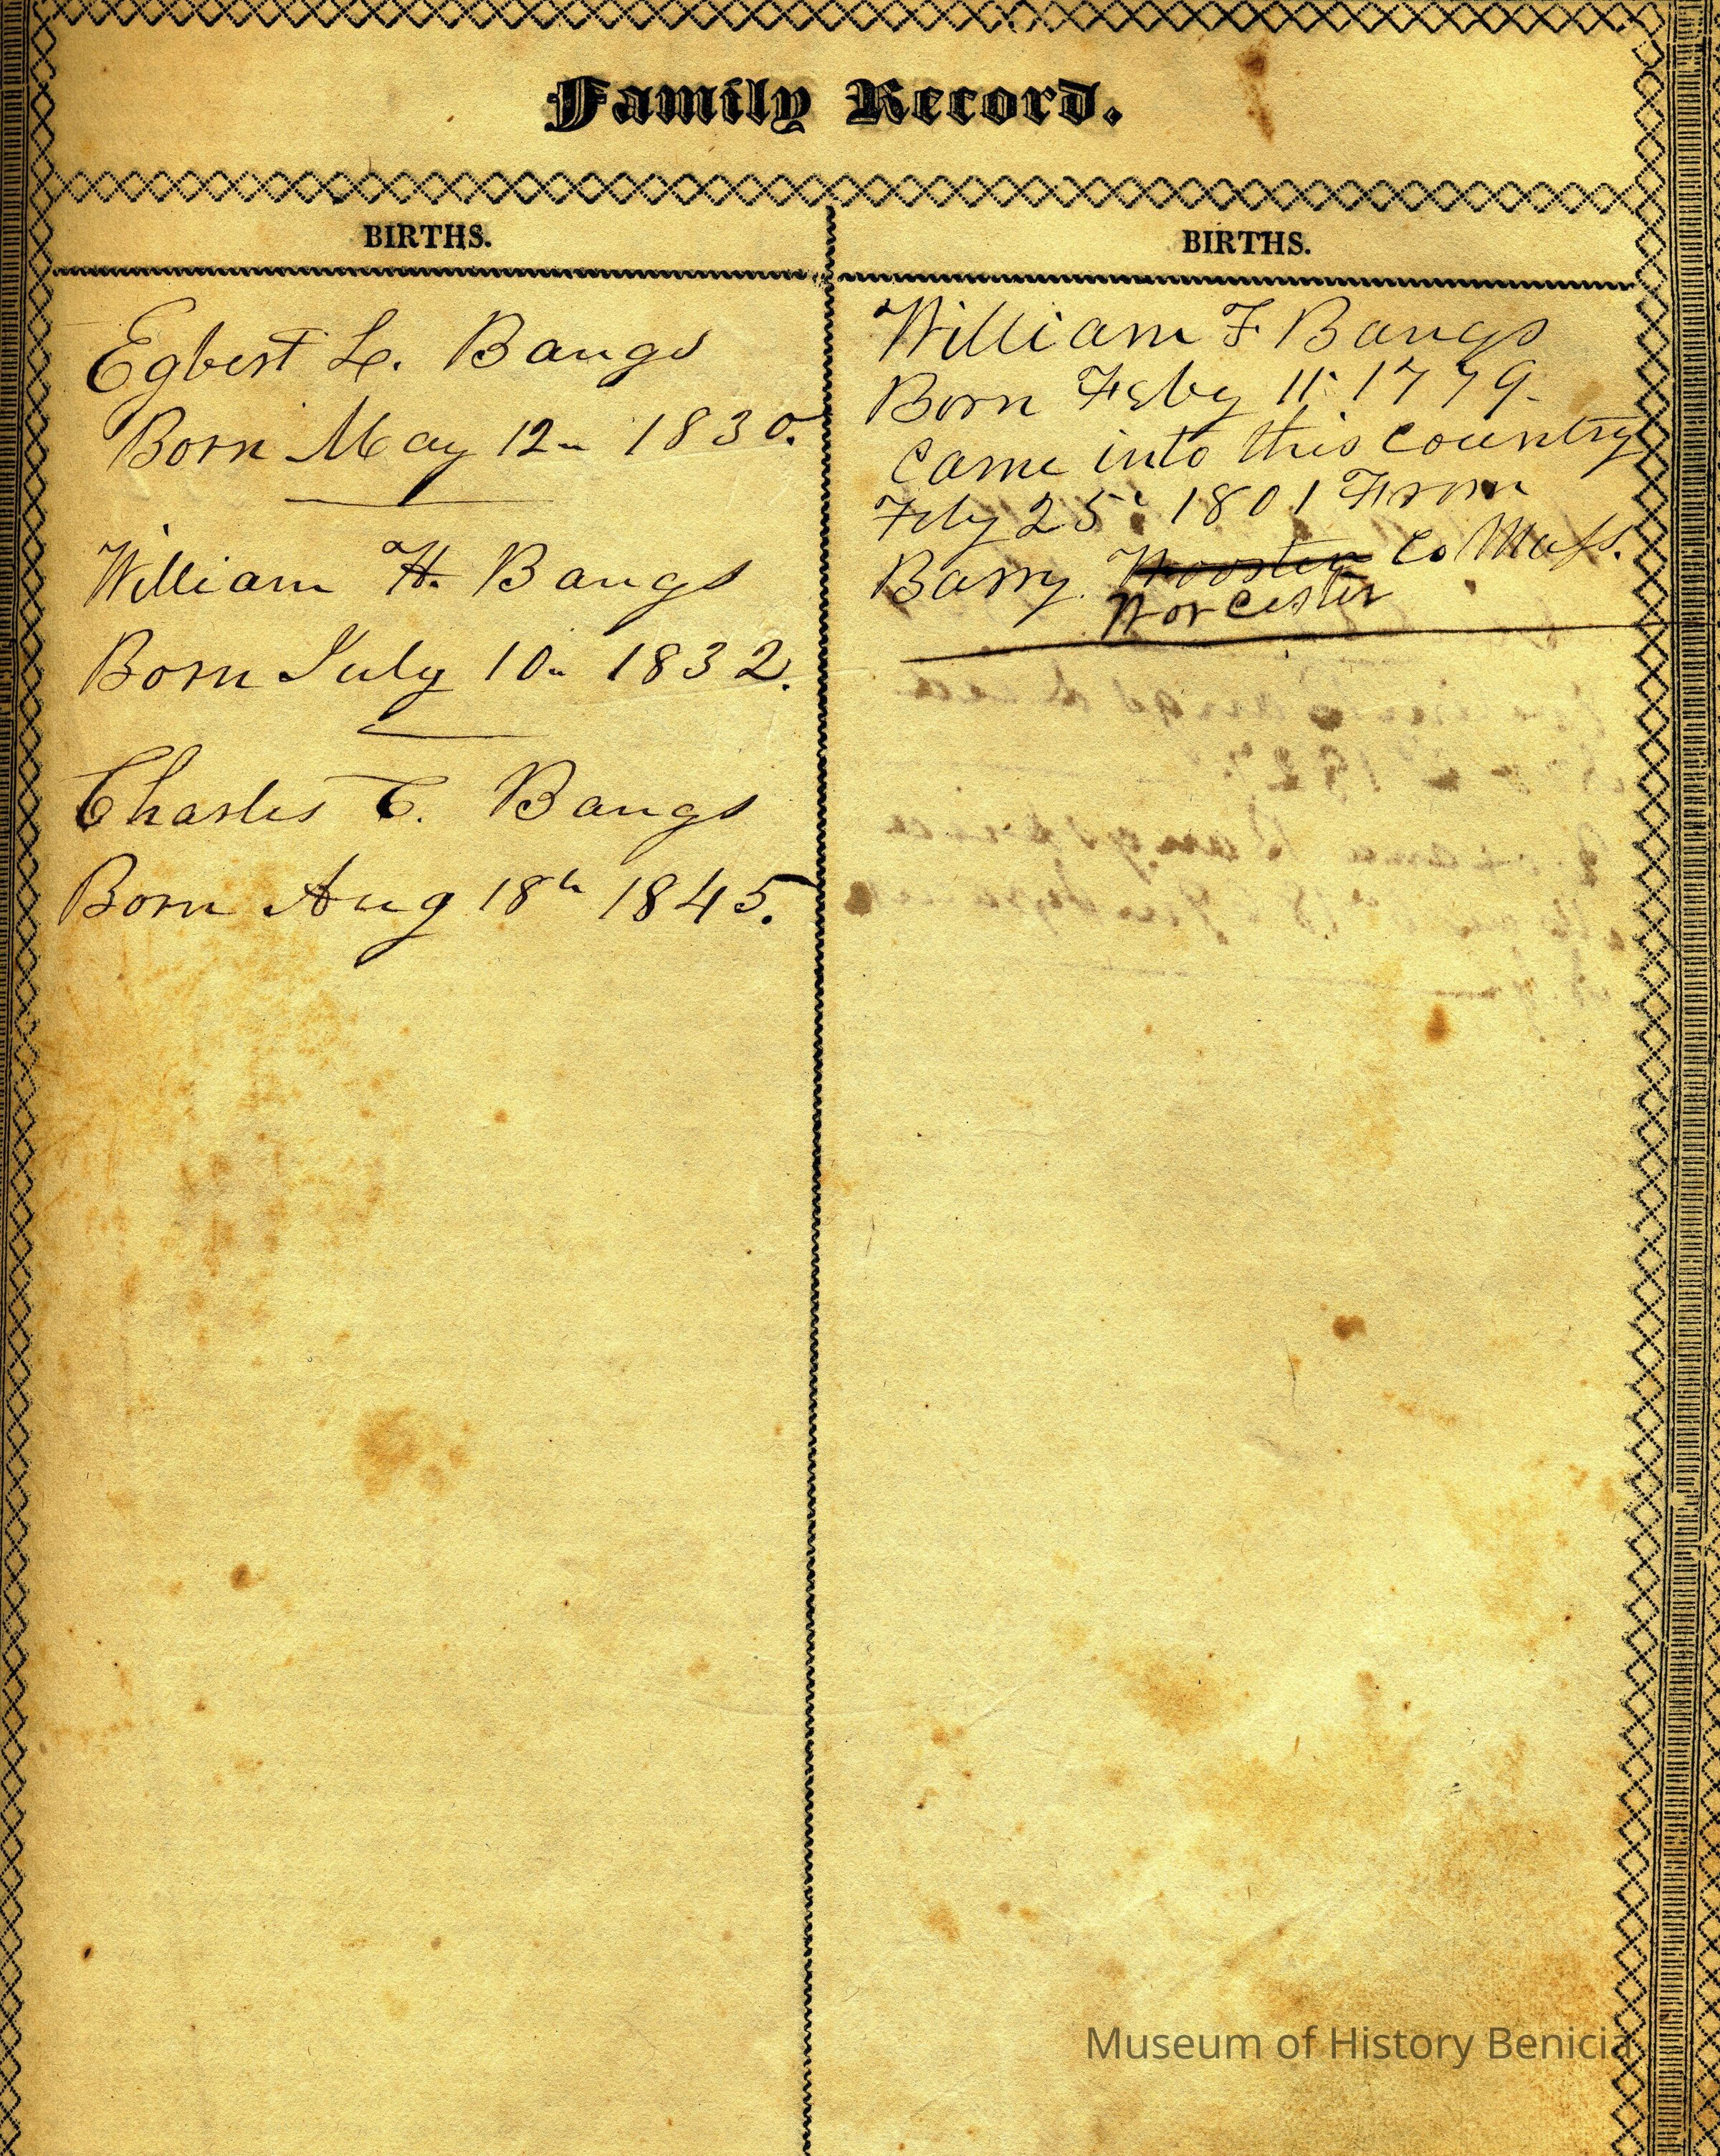 Family Record.
BIRTHS.
Egbert L. Bangs
Born May 12th 1830.
William H. Bangs
Born July 10th 1832.
Charles C. Bangs
Born Aug 18th 1845.
BIRTHS.
William F Bangs
Born Feby 11th 1779.
Came into this Country
Feby 25th 1801 From
Barry Wooster Co Mass.
Worcester
Museum of History Benicia